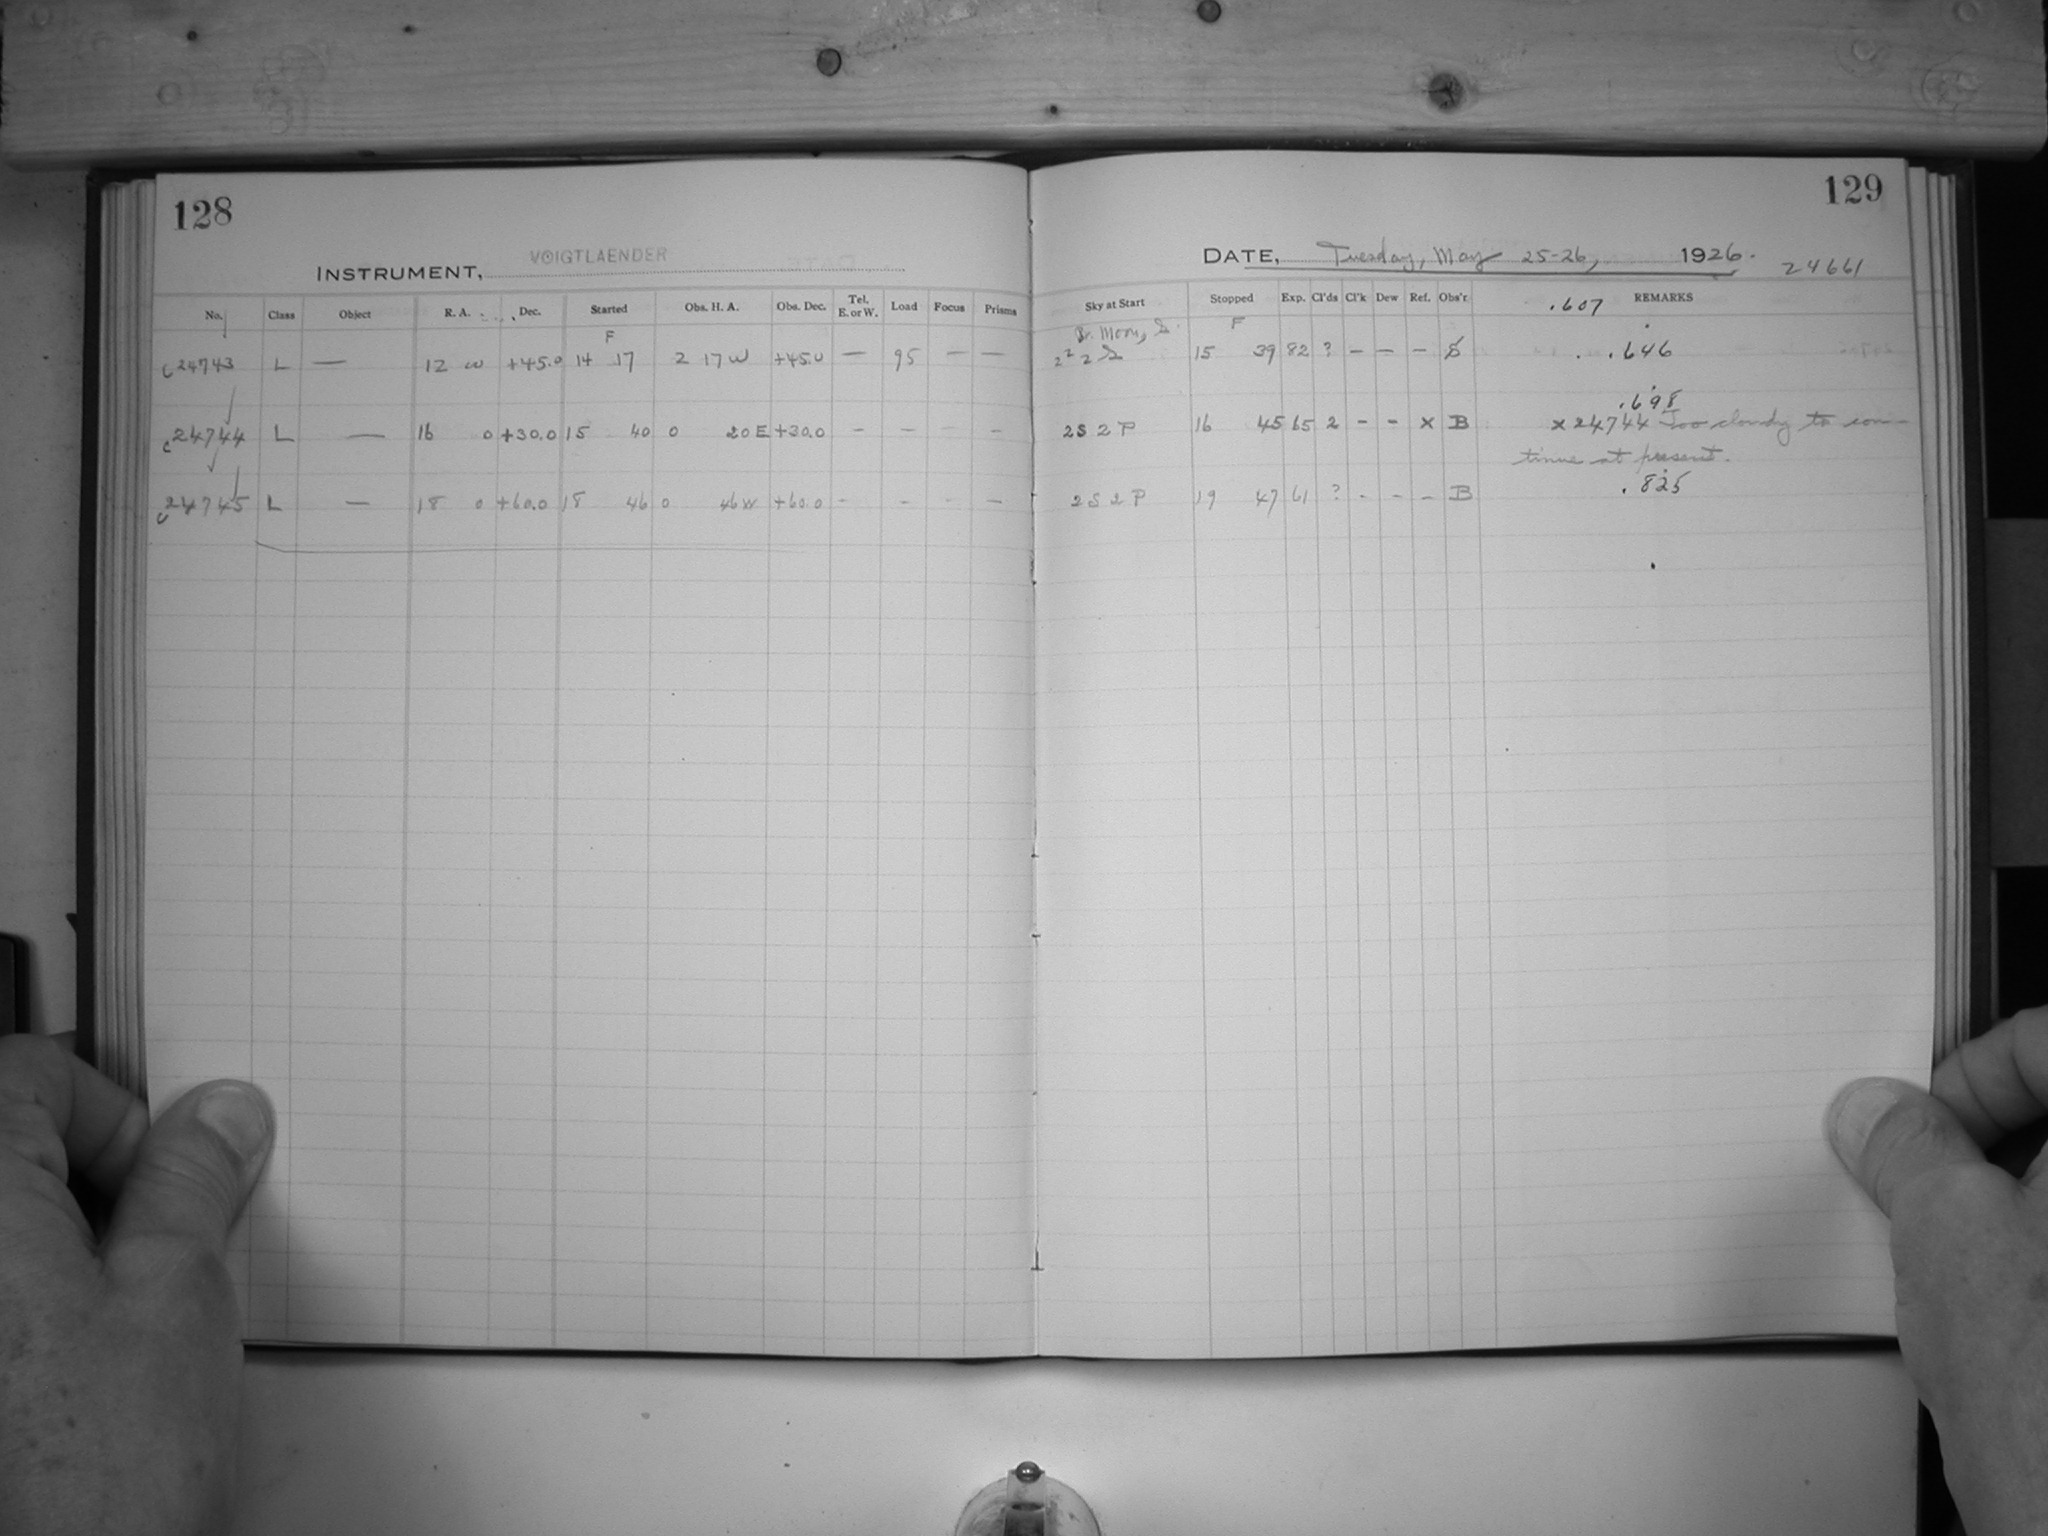 128
INSTRUMENT, VOIGTLAENDER
No. Class Object R. A. Dec. Started Obs. H. A. Obs. Dec. Tel. E. or W. Load Focus Prisms
F
24743 L — 12 w +45.0 14 17 2 17 W +45.0 — 95 — —
24744 L — 16 0 +30.0 15 40 0 20 E +30.0 - - - -
24745 L — 18 0 +60.0 18 46 0 46 W +60.0 - - - -
129
DATE, Tuesday, May 25-26, 1926. 24661
Sky at Start Stopped Exp. Cl'ds Cl'k Dew Ref. Obs'r. .607 REMARKS
Br. Moon, S. F
2 2 2 S 15 39 82 ? — — — S .646
.698
2S 2 P 16 45 65 2 - - X B x 24744 Too cloudy to con-
tinue at present.
2 S 2 P 19 47 61 ? - - - B .825